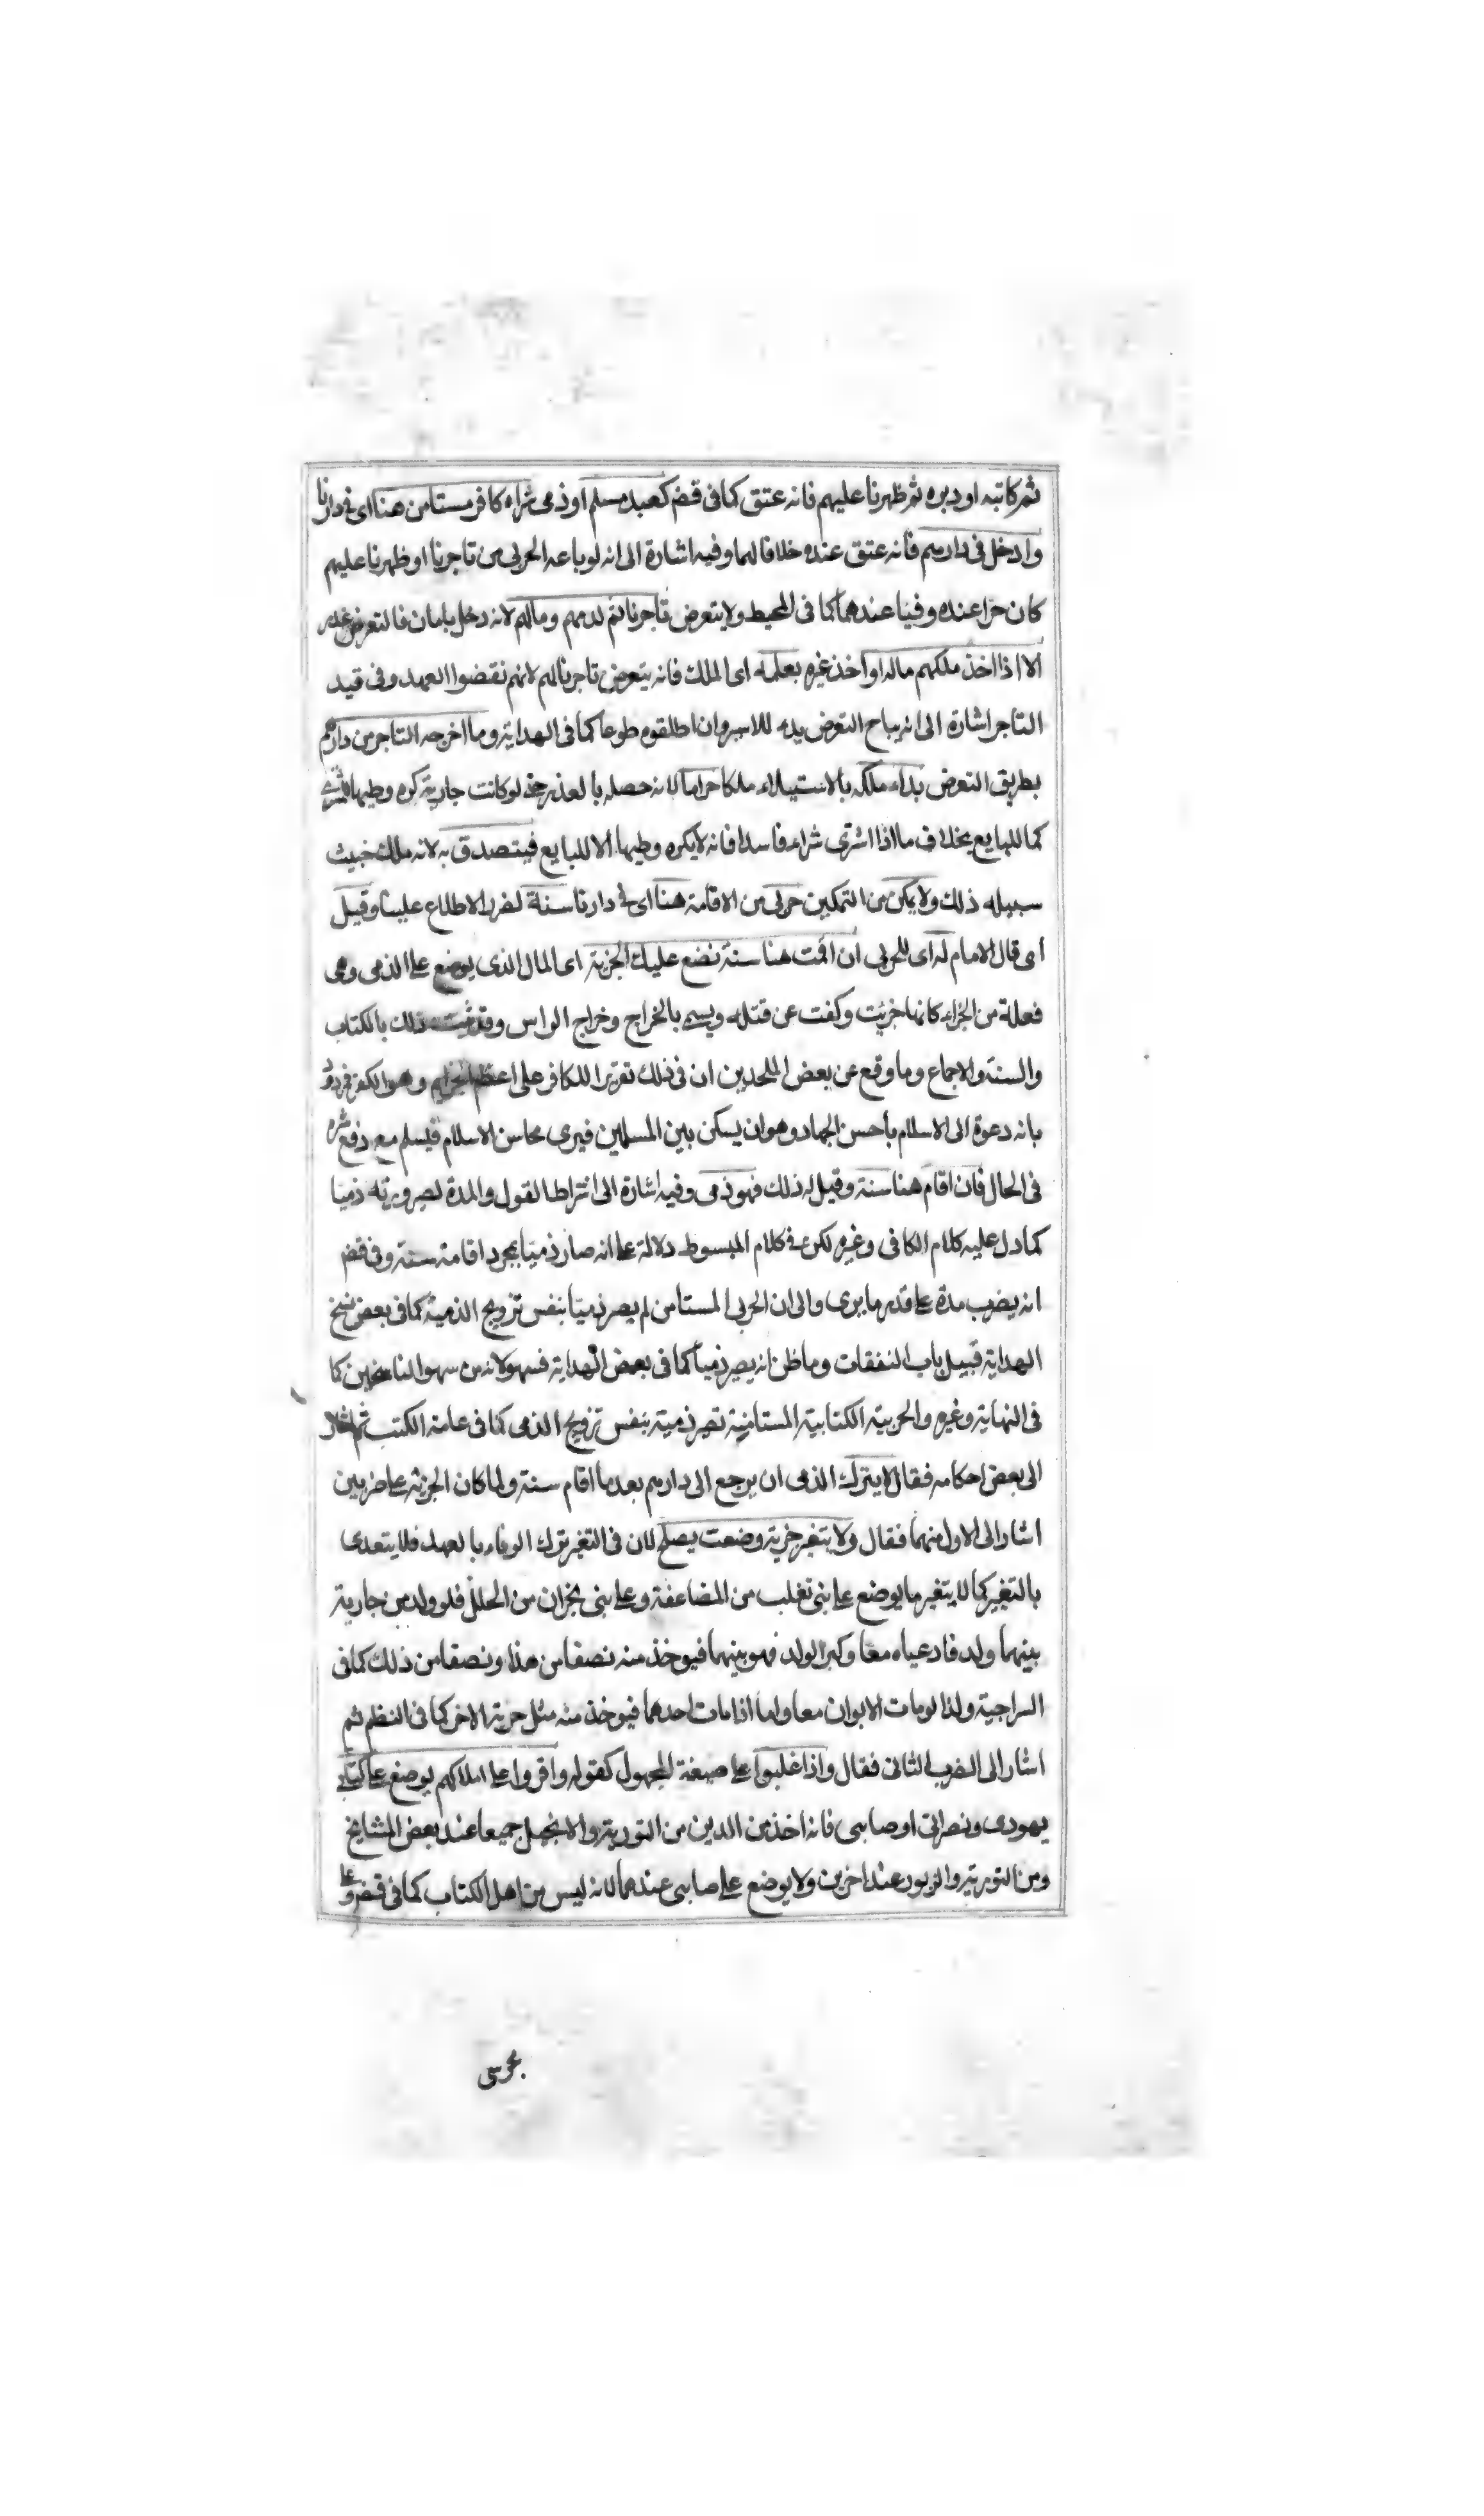 ثم كاتبه او دبره ثم ظهرنا عليهم فانه عتق كما فى قضخ كعبد مسلم او ذمى شراه كافر مستامن هنا اى فى دارنا
وادخل فى دارهم فانه عتق عنده خلافا لهما وفيه اشارة الى انه لو باعه الحربى من تاجرنا او ظهرنا عليهم
كان حرا عنده وفيئا عندهما كما فى المحيط ولا يتعرض تاجرنا ثم لدمهم ومالهم لانه دخل بامان فالتعرض غدر
الا اذا اخذ ملكهم ماله او اخذ غيره بعلمه اى الملك فانه يتعرض تاجرنا لهم لانهم نقضوا العهد وفى قيد
التاجر اشارة الى انه يباح التعرض يده للاسير وان اطلقوه طوعا كما فى الهداية وما اخرجه التاجر من دارهم
بطريق التعرض بداء ملكه بالاستيلاء ملكا حراما لانه حصله بالغدر حتى لو كانت جارية كره وطيها للمشترى
كما للبايع بخلاف ما اذا اشترى شراء فاسدا فانه لا يكره وطيها الا للبايع فيتصدق به لانه ملك خبيث
سبيله ذلك ولا يمكن من التمكين حربى من الاقامة هنا اى فى دارنا سنة لضرر الاطلاع علينا وقيل
اى قال الامام له اى للحربى ان اقمت هنا سنة نضع عليك الجزية اى المال الذى يوضع على الذمى وهى
فعلة من الجزاء كانها جزيت وكفت عن قتله ويسمى بالخراج وخراج الراس وقد ثبت ذلك بالكتاب
والسنة والاجماع وما وقع عن بعض الملحدين ان فى ذلك تقريرا للكافر على اعظم الجرايم وهو الكفر فردود
بانه دعوة الى الاسلام باحسن الجهاد وهو ان يسكن بين المسلمين فيرى محاسن الاسلام فيسلم مع دفع شره
فى الحال فان اقام هنا سنة وقيل له ذلك فهو ذمى وفيه اشارة الى اشتراط القول والمدة لصيرورته ذميا
كما دل عليه كلام الكافى وغيره لكن فى كلام المبسوط دلالة على انه صار ذميا بمجرد اقامة سنة وفى قضخ
انه يضرب مدة على قدر ما يرى والى ان الحربى المستامن لم يصر ذميا بنفس تزويج الذمية كما فى بعض نسخ
الهداية قبيل باب النفقات وما ظن انه يصير ذميا كما فى بعض الهداية فسهو لانه من سهو الناسخين كما
فى النهاية وغيره والحربية الكتابية المستامنة تصير ذمية بنفس تزويج الذمى كما فى عامة الكتب ثم اشار
الى بعض احكامه فقال لا يترك الذمى ان يرجع الى دارهم بعد ما اقام سنة ولما كان الجزية على ضربين
اشار الى الاول منهما فقال ولا يتغير جزية وضعت بصلح لان فى التغير ترك الوفاء بالعهد فلا يتعدى
بالتغير كما لا يتغير ما يوضع على بنى تغلب من المضاعفة وعلى بنى نجران من الحلل فلو ولد من جارية
بينهما ولد فادعياه معا وكبر الولد فهو بينهما فيوخذ منه نصفا من هذا ونصفا من ذلك كما فى
السراجية ولذا لو مات الابوان معا واما اذا مات احدهما فيوخذ منه مثل جزية الاخر كما فى النظم ثم
اشار الى الضرب الثانى فقال واذا غلبوا على صيغة المجهول كقوله واقروا على املاكهم يوضع على كتابى
يهودى ونصرانى او صابى فانه اخذ من الدين من التورية والانجيل جميعا عند بعض المشايخ
ومن التورية والزبور عند اخرين ولا يوضع على صابى عندهما لانه ليس من اهل الكتاب كما فى قضخ وعلى